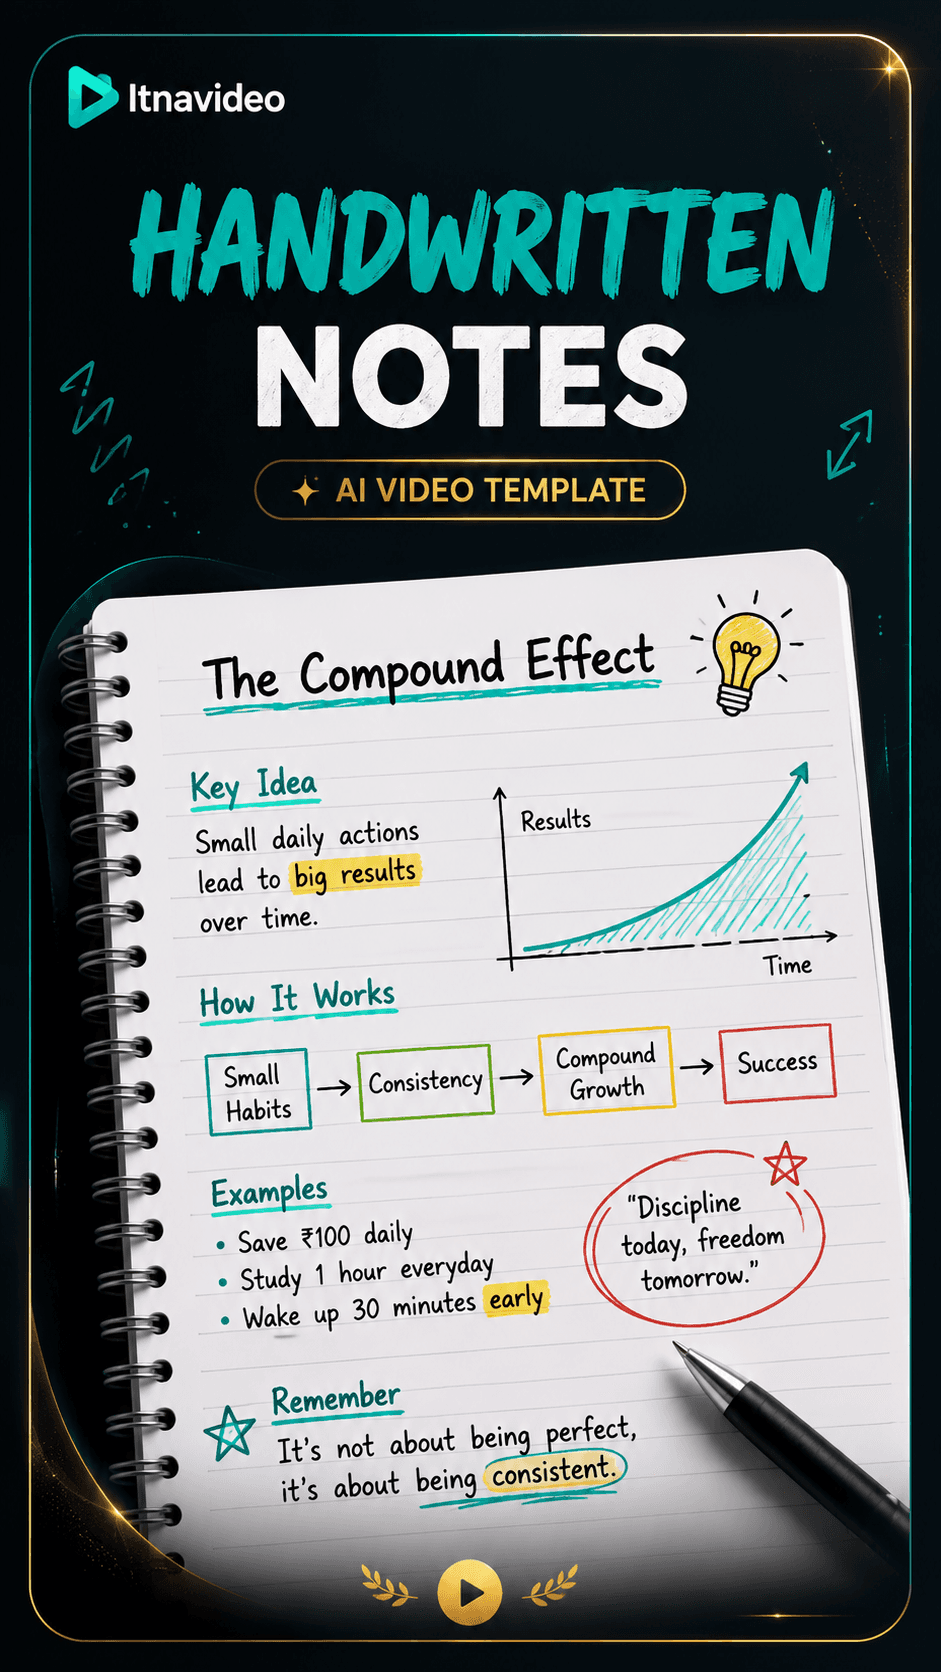 Itnavideo
HANDWRITTEN
NOTES
AI VIDEO TEMPLATE
The Compound Effect
Key Idea
Small daily actions
lead to big results
over time.
Results
Time
How It Works
Small
Habits
Consistency
Compound
Growth
Success
Examples
• Save ₹100 daily
• Study 1 hour everyday
• Wake up 30 minutes early
"Discipline
today, freedom
tomorrow."
Remember
It's not about being perfect,
it's about being consistent.